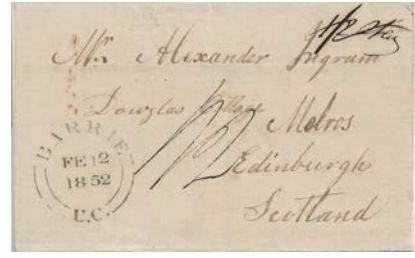 Mr. Alexander Ingram
Douglas Village
Melros
Edinburgh
Scotland
BARRIE
FE 12
1852
U.C.